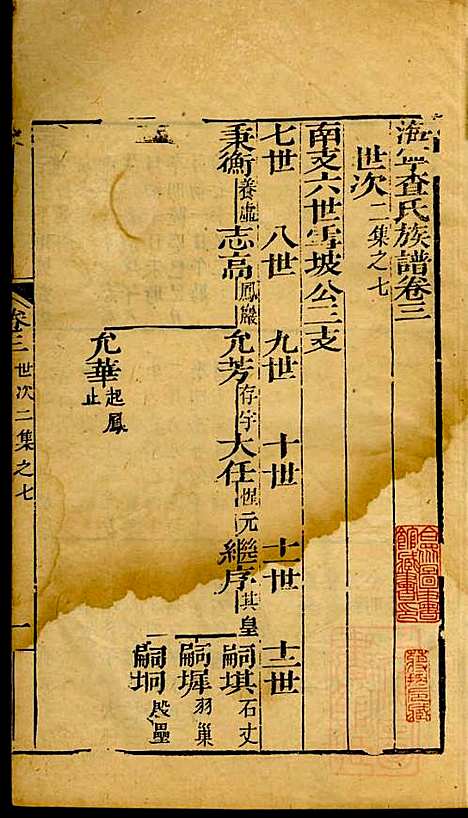 海寧查氏族譜卷三
世次二集之七
南支六世雪坡公三支
七世 八世 九世 十世 十一世 十二世
秉衡養虛 志高鳳巖 允芳存宇 大任惺元 繼序其皇 嗣琪石丈
嗣墀羽巢
嗣坰殷壘
允華起鳳止
卷三 世次二集之七 一